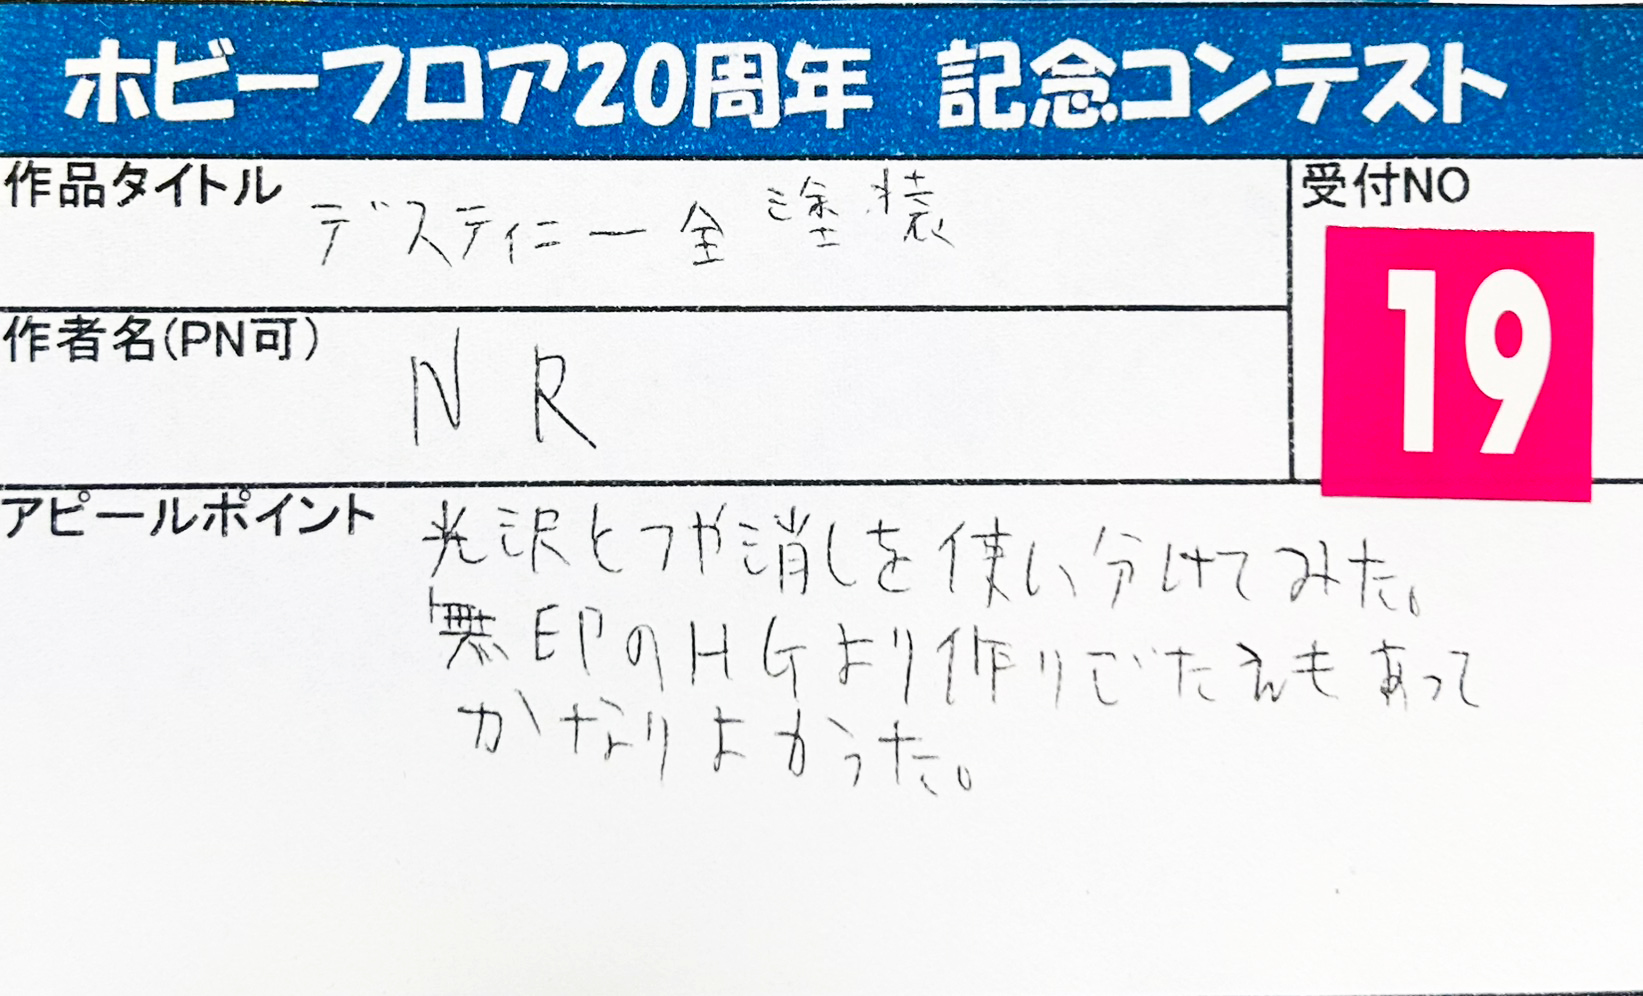 ホビーフロア20周年 記念コンテスト
作品タイトル
デスティニー全塗装
受付NO
19
作者名(PN可)
NR
アピールポイント
光沢とつや消しを使い分けてみた。
無印のHGより作りごたえもあって
かなりよかった。